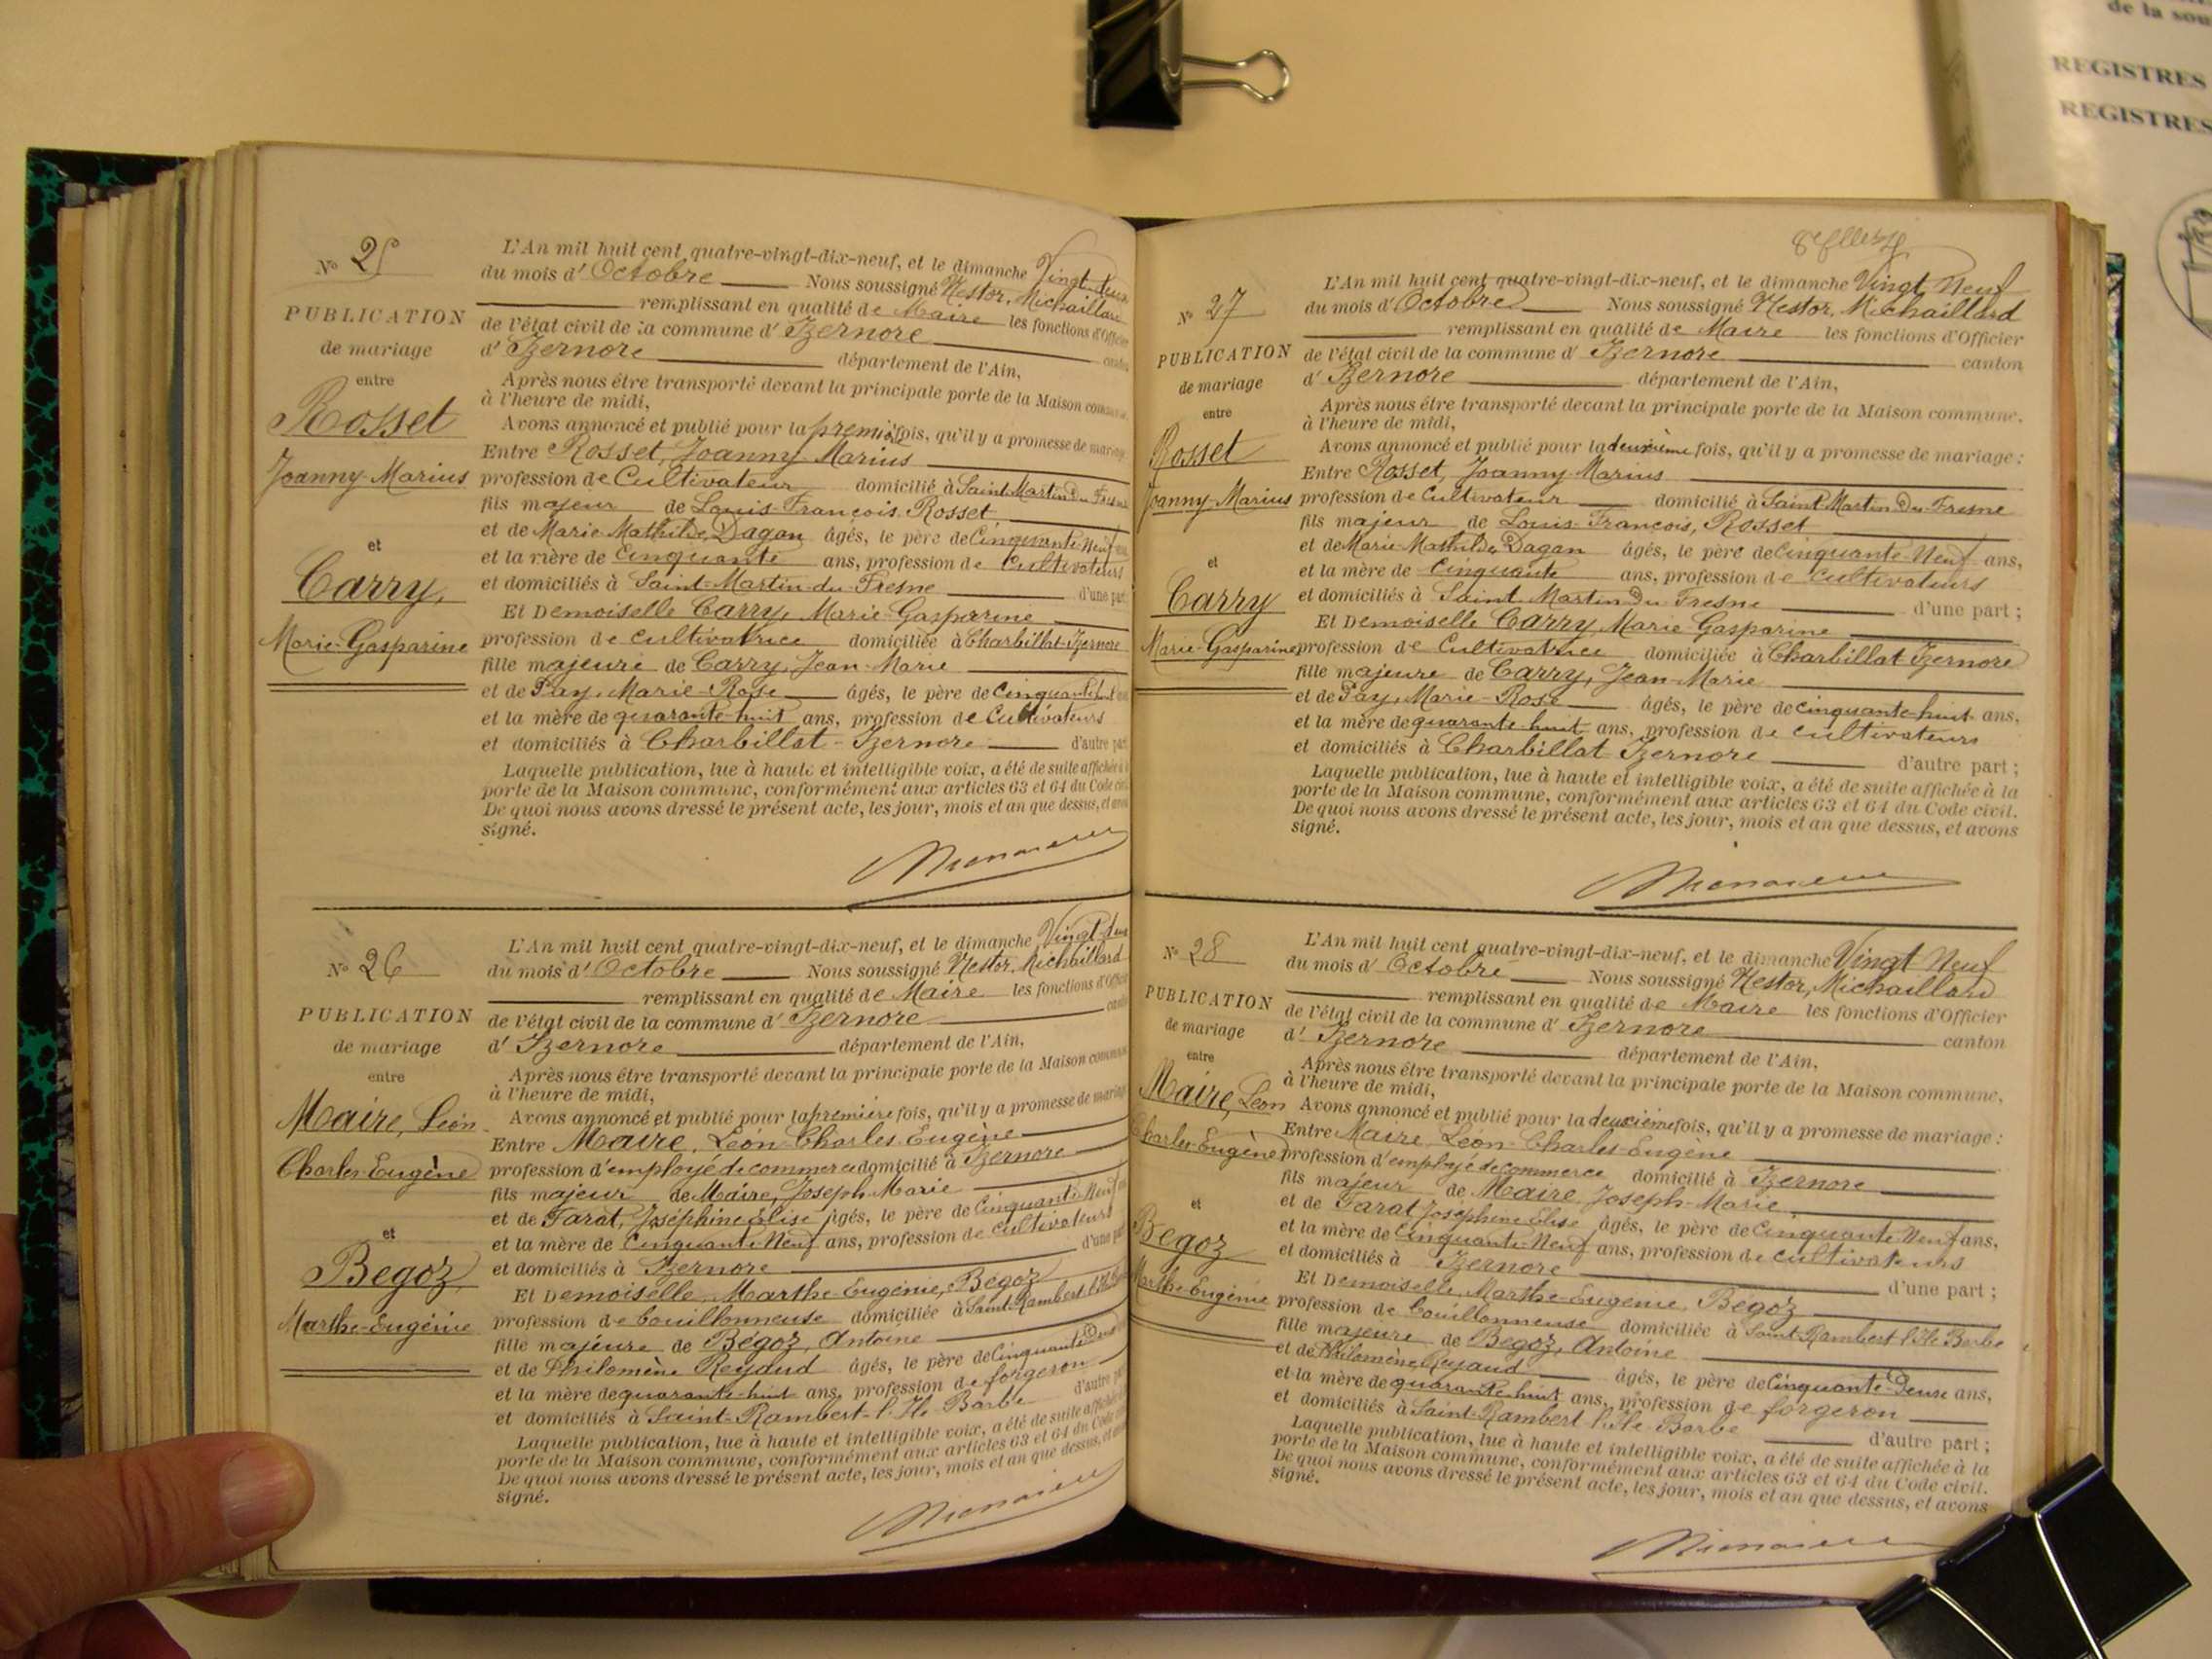 de la sou
REGISTRES
REGISTRES
N° 25
PUBLICATION
de mariage
entre
Rosset
Joanny-Marius
et
Carry,
Marie-Gasparine
L'An mil huit cent quatre-vingt-dix-neuf, et le dimanche Vingt deux
du mois d'Octobre Nous soussigné Nestor, Michaillard
remplissant en qualité de Maire les fonctions d'Officier
de l'état civil de la commune d'Izernore canton
d'Izernore département de l'Ain,
Après nous être transporté devant la principale porte de la Maison commune,
à l'heure de midi,
Avons annoncé et publié pour la première fois, qu'il y a promesse de mariage
Entre Rosset, Joanny-Marius
profession de Cultivateur domicilié à Saint-Martin-du-Fresne
fils majeur de Louis-François, Rosset
et de Marie-Mathilde, Dagan âgés, le père de Cinquante-Neuf ans
et la mère de Cinquante ans, profession de Cultivateurs
et domiciliés à Saint-Martin-du-Fresne d'une part
Et Demoiselle Carry, Marie-Gasparine
profession de cultivatrice domiciliée à Charbillat-Izernore
fille majeure de Carry, Jean-Marie
et de Pay, Marie-Rose âgés, le père de Cinquante-huit
et la mère de quarante-huit ans, profession de Cultivateurs
et domiciliés à Charbillat-Izernore d'autre part
Laquelle publication, lue à haute et intelligible voix, a été de suite affichée à la
porte de la Maison commune, conformément aux articles 63 et 64 du Code civil
De quoi nous avons dressé le présent acte, les jour, mois et an que dessus, et avons
signé.
N° 26
PUBLICATION
de mariage
entre
Maire, Léon
Charles-Eugène
et
Begoz,
Marthe-Eugénie
L'An mil huit cent quatre-vingt-dix-neuf, et le dimanche Vingt-deux
du mois d'Octobre Nous soussigné Nestor, Michaillard
remplissant en qualité de Maire les fonctions d'Officier
de l'état civil de la commune d'Izernore canton
d'Izernore département de l'Ain,
Après nous être transporté devant la principale porte de la Maison commune
à l'heure de midi,
Avons annoncé et publié pour la première fois, qu'il y a promesse de mariage
Entre Maire, Léon-Charles-Eugène
profession d'employé de commerce domicilié à Izernore
fils majeur de Maire, Joseph-Marie
et de Tarat, Joséphine Elise âgés, le père de Cinquante-Neuf
et la mère de Cinquante-Neuf ans, profession de cultivateurs
et domiciliés à Izernore d'une part
Et Demoiselle Marthe-Eugénie, Begoz
profession de bouillonneuse domiciliée à Saint-Rambert-l'Ile-Barbe
fille majeure de Begoz, Antoine
et de Philomène Reydud âgés, le père de Cinquante-Deux
et la mère de quarante-huit ans, profession de forgeron
et domiciliés à Saint-Rambert-l'Ile-Barbe d'autre part
Laquelle publication, lue à haute et intelligible voix, a été de suite affichée à la
porte de la Maison commune, conformément aux articles 63 et 64 du Code civil
De quoi nous avons dressé le présent acte, les jour, mois et an que dessus, et avons
signé.
N° 27
PUBLICATION
de mariage
entre
Rosset
Joanny-Marius
et
Carry
Marie-Gasparine
L'An mil huit cent quatre-vingt-dix-neuf, et le dimanche Vingt Neuf
du mois d'Octobre Nous soussigné Nestor, Michaillard
remplissant en qualité de Maire les fonctions d'Officier
de l'état civil de la commune d'Izernore canton
d'Izernore département de l'Ain,
Après nous être transporté devant la principale porte de la Maison commune,
à l'heure de midi,
Avons annoncé et publié pour la deuxième fois, qu'il y a promesse de mariage :
Entre Rosset, Joanny-Marius
profession de Cultivateur domicilié à Saint Martin-Du-Fresne
fils majeur de Louis-François, Rosset
et de Marie-Mathilde, Dagan âgés, le père de Cinquante-Neuf ans,
et la mère de Cinquante ans, profession de cultivateurs
et domiciliés à Saint Martin Du Fresne d'une part ;
Et Demoiselle Carry, Marie-Gasparine
profession de Cultivatrice domiciliée à Charbillat-Izernore
fille majeure de Carry, Jean-Marie
et de Pay, Marie-Rose âgés, le père de cinquante-huit ans,
et la mère de quarante-huit ans, profession de cultivateurs
et domiciliés à Charbillat Izernore d'autre part ;
Laquelle publication, lue à haute et intelligible voix, a été de suite affichée à la
porte de la Maison commune, conformément aux articles 63 et 64 du Code civil.
De quoi nous avons dressé le présent acte, les jour, mois et an que dessus, et avons
signé.
N° 28
PUBLICATION
de mariage
entre
Maire, Léon
Charles-Eugène
et
Begoz
Marthe-Eugénie
L'An mil huit cent quatre-vingt-dix-neuf, et le dimanche Vingt Neuf
du mois d'Octobre Nous soussigné Nestor, Michaillard
remplissant en qualité de Maire les fonctions d'Officier
de l'état civil de la commune d'Izernore canton
d'Izernore département de l'Ain,
Après nous être transporté devant la principale porte de la Maison commune,
à l'heure de midi,
Avons annoncé et publié pour la deuxième fois, qu'il y a promesse de mariage :
Entre Maire, Léon-Charles-Eugène
profession d'employé de commerce domicilié à Izernore
fils majeur de Maire Joseph-Marie
et de Tarat Joséphine Elise âgés, le père de Cinquante Neuf ans,
et la mère de Cinquante-Neuf ans, profession de cultivateurs
et domiciliés à Izernore d'une part ;
Et Demoiselle Marthe-Eugénie, Begoz
profession de bouillonneuse domiciliée à Saint-Rambert-l'Ile Barbe
fille majeure de Begoz, Antoine
et de Philomène, Reydud âgés, le père de Cinquante-Deux ans,
et la mère de quarante-huit ans, profession de forgeron
et domiciliés à Saint-Rambert-l'Ile-Barbe d'autre part ;
Laquelle publication, lue à haute et intelligible voix, a été de suite affichée à la
porte de la Maison commune, conformément aux articles 63 et 64 du Code civil.
De quoi nous avons dressé le présent acte, les jour, mois et an que dessus, et avons
signé.